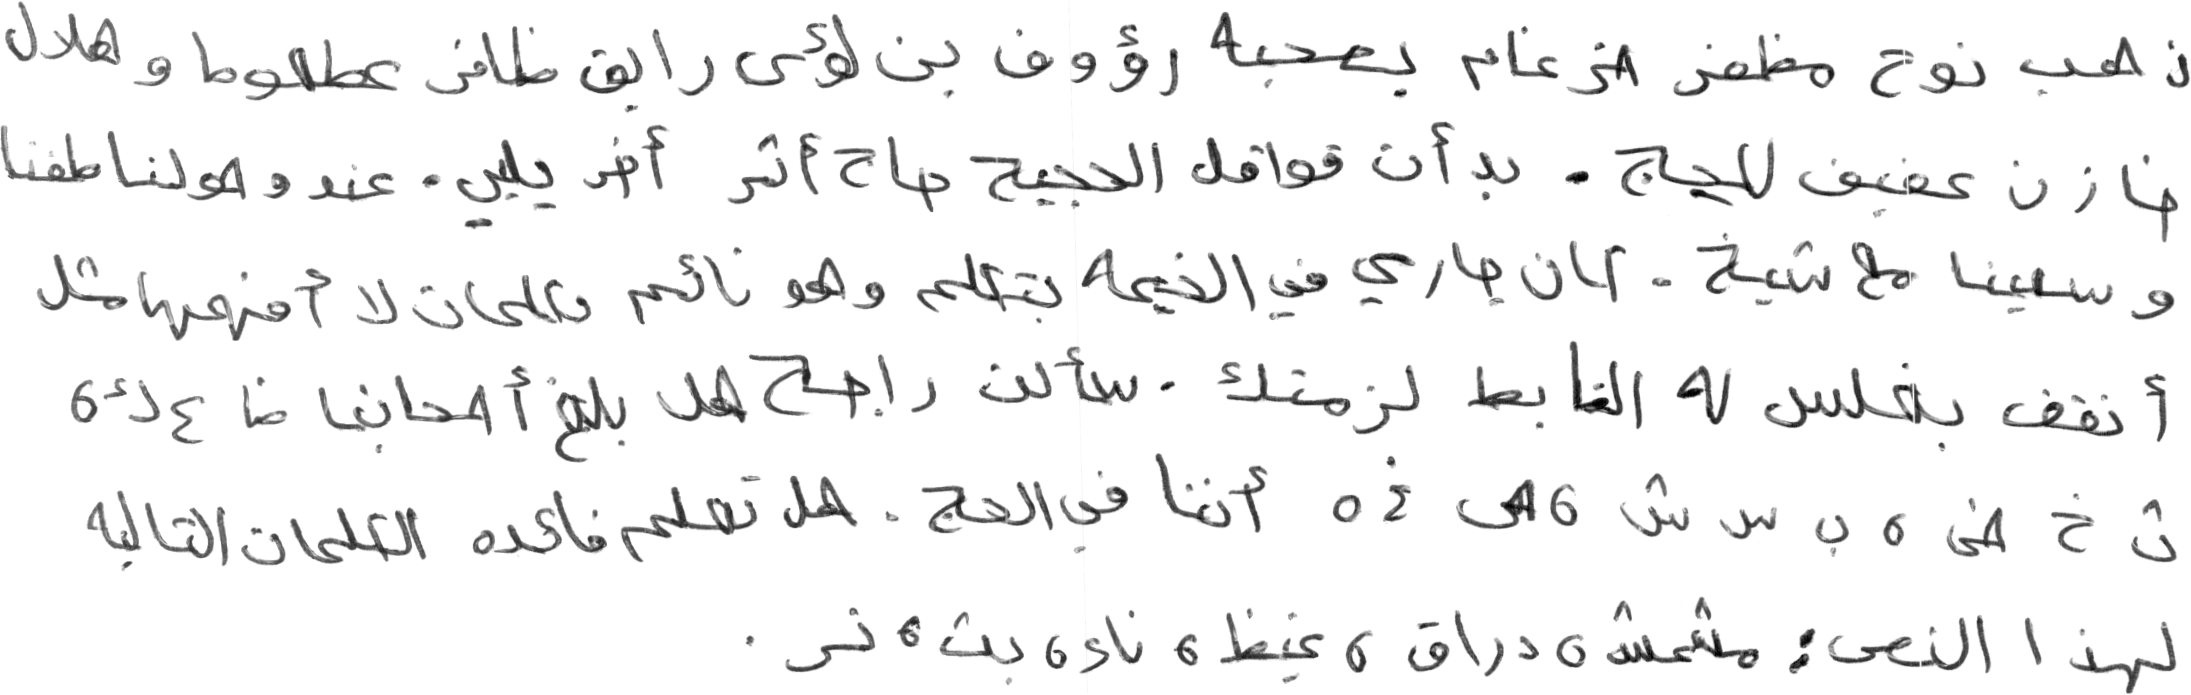 ذهب نوح مظفر ضرغام بصحبه رؤوف بن لؤي رايق ظافر عطعوط و هلال
خازن عفيف للحج . بدأت قوافل الحجيج صاح أثر أخر يلبي . عند وصولنا طفنا
و سعينا مع شيخ . كان جاري في الخيمه يتكلم وهو نائم كلمات لا أفهمها مثل
أنقف بغلس له الضابط لزمتك . سألت راجح هل بلغ أصحابنا ظ ع ك ،
ث خ ض ، ب س ش ، ص ئ ه أننا في الحج . هل تعلم فائده الكلمات التاليه
لهذا النص : مشمش ، دراق ، غيظ ، ناء ، بث ، نمر .